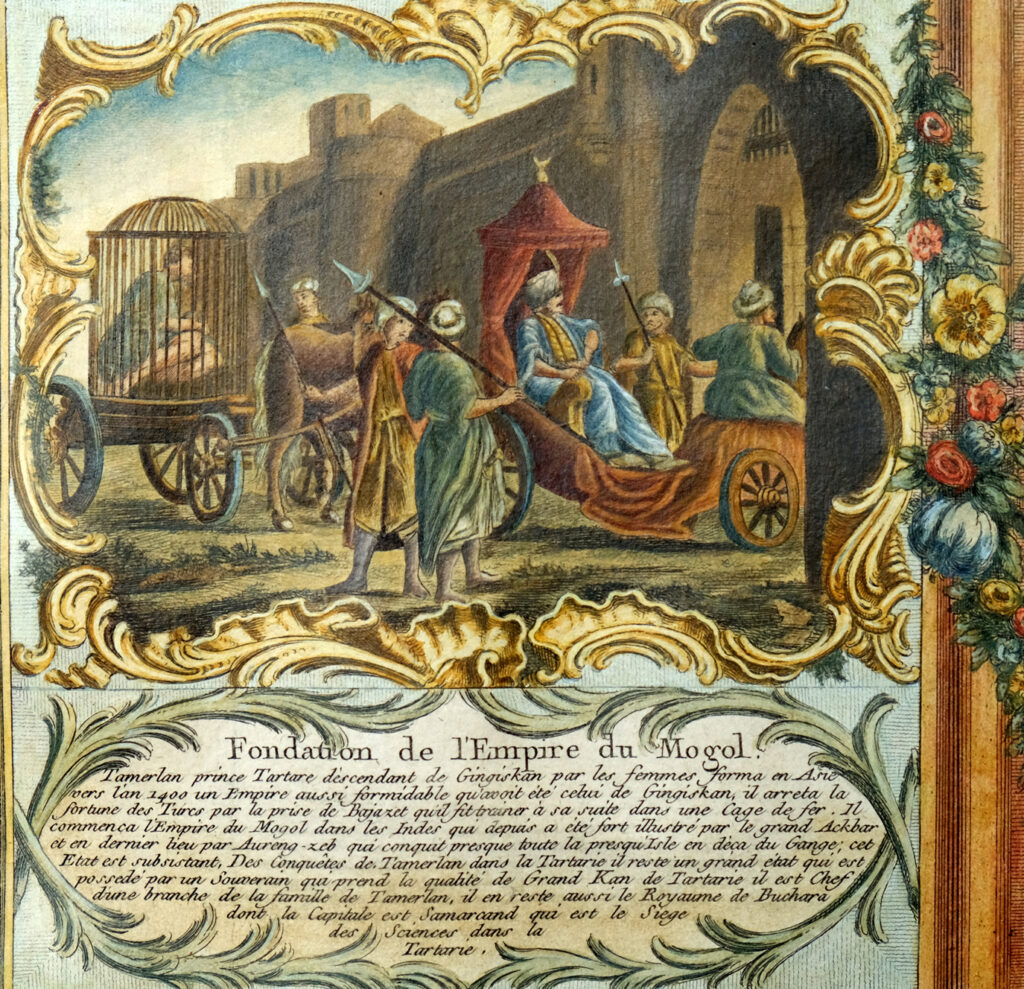 Fondation de l'Empire du Mogol.
Tamerlan prince Tartare descendant de Gingiskan par les femmes, forma en Asie
vers l'an 1400 un Empire aussi formidable qu'avoit eté celui de Gingiskan, il arreta la
fortune des Turcs par la prise de Bajazet qu'il fit trainer à sa suite dans une Cage de fer. Il
commenca l'Empire du Mogol dans les Indes qui depuis a eté fort illustré par le grand Ackbar
et en dernier lieu par Aureng-zeb qui conquit presque toute la presqu'Isle en deça du Gange; cet
Etat est subsistant, Des Conquêtes de Tamerlan dans la Tartarie il reste un grand etat qui est
possedé par un Souverain qui prend la qualité de Grand Kan de Tartarie il est Chef
d'une branche de la famille de Tamerlan, il en reste aussi le Royaume de Buchara
dont la Capitale est Samarcand qui est le Siege
des Sciences dans la
Tartarie.